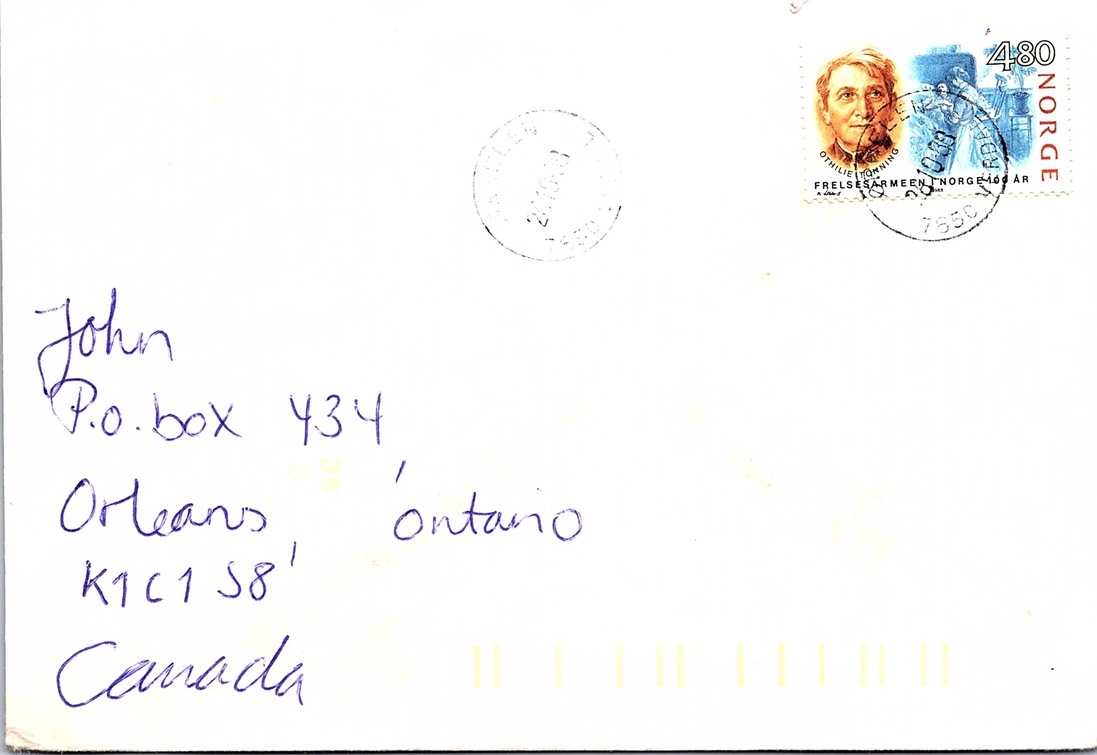 480
NORGE
OTHILIE TONNING
FRELSESARMEEN I NORGE 100 ÅR
1988
7650 VERDAL
7650
John
P.O. box 434,
Orleans, Ontario
K1C1S8
Canada